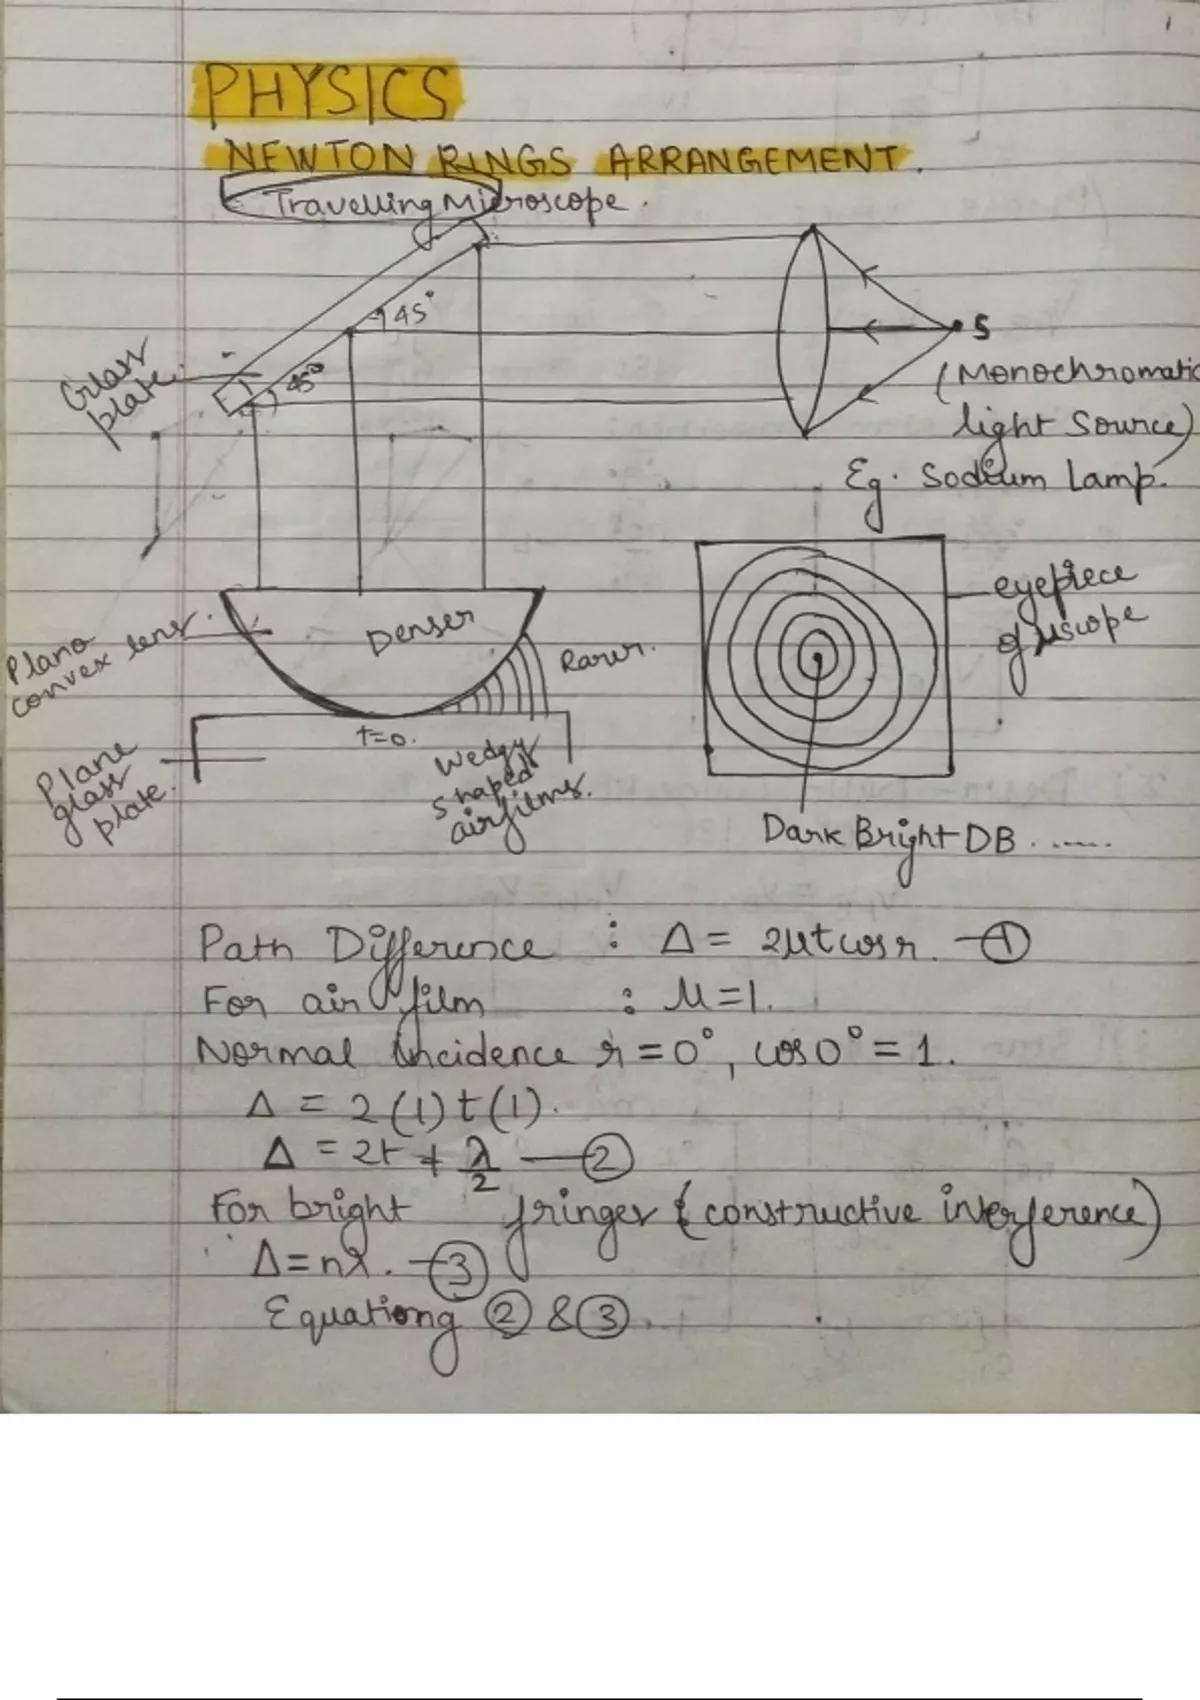 PHYSICS
NEWTON RINGS ARRANGEMENT.
Travelling Microscope.
45°
45°
Glass
plate.
S
(Monochromatic
light Source)
Eg. Sodium Lamp.
Plano
convex lens.
Denser
Rarer.
eyepiece
of μscope
t=0.
Plane
glass
plate.
Wedge
shaped
airfilms.
Dark Bright DB . .....
Path Difference : Δ = 2μt cos r. — ①
For air film : μ=1.
Normal incidence r=0°, cos0°=1.
Δ = 2(1)t(1).
Δ = 2t + λ/2 — ②
For bright fringes (constructive interference)
Δ=nλ. — ③
Equationg ② & ③.